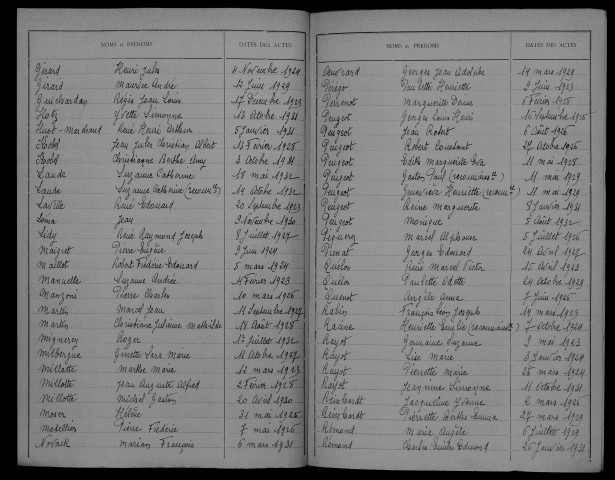 NOMS et PRENOMS DATES DES ACTES
Girard Henri Jules 4 Novembre 1924
Girard Maurice André 12 Juin 1929
Guicharday Régis Jean Louis 17 Décembre 1923
Hotz Yvette Simonne 13 Octobre 1931
Huot-Marchand René Henri Arthur 5 Janvier 1931
Jean Jules Christian Albert 13 Février 1925
Christiagne Berthe Amy 3 Octobre 1931
Laude Suzanne Catherine 18 mai 1932
Laude Suzanne Catherine 14 Octobre 1932
Laville René Edouard 20 Septembre 1923
Jean 9 Novembre 1930
Lidy René Raymond Joseph 8 Juillet 1927
Maigret Pierre Eugène 2 Juin 1924
Maillot Robert Frédéric Edouard 5 mars 1924
Manuelle Suzanne Andrée 11 Février 1923
Manzoni Pierre Charles 10 mars 1926
Martin Marcel Jean 11 Septembre 1927
Martin Christiane Julienne Mathilde 18 Août 1928
Mignerey Roger 12 Juillet 1932
Milbergue Ginette Sara Marie 11 Octobre 1927
Millotte Marthe Marie 12 mars 1923
Millotte Jean Auguste Alfred 2 Février 1928
Millotte Michel Gaston 20 Avril 1930
Moser Hélène 21 mai 1926
Pierre Frédéric 7 mai 1926
Novack Marian François 6 mars 1931
NOMS et PRÉNOMS DATES DES ACTES
Georges Jean Adolphe 14 mars 1929
Paulette Henriette 2 Juin 1923
Perrenot Marguerite Denise 5 Février 1926
Peugeot Georges Louis Henri 16 Septembre 1926
Peugeot Jean Robert 6 Août 1926
Peugeot Robert Constant 27 Octobre 1926
Peugeot Edith Marguerite Eva 11 mai 1928
Peugeot Gaston Paul 11 mai 1929
Peugeot Geneviève Henriette 11 mai 1929
Peugeot Reine Marguerite 8 Janvier 1931
Peugeot Monique 5 Août 1932
Marcel Alphonse 5 Juillet 1926
Georges Edouard 24 Avril 1927
René Marcel Victor 15 Avril 1923
Paulette Odette 24 Octobre 1929
Quenot Angèle Anna 7 Juin 1926
Rabin François Léon Joseph 14 mars 1926
Racine Henriette Emilie 7 Octobre 1924
Rayot Germaine Suzanne 9 mai 1923
Rayot Lise Marie 3 Janvier 1924
Rayot Pierrette Marie 26 mars 1924
Rayot Jeannine Simonne 11 Octobre 1931
Reinhardt Jacqueline Yvonne 2 mars 1926
Reinhardt Pierrette Berthe Emma 27 mars 1929
Rémond Maria Angèle 6 Juillet 1929
Rémond Charles Emile Edmond 26 Janvier 1931